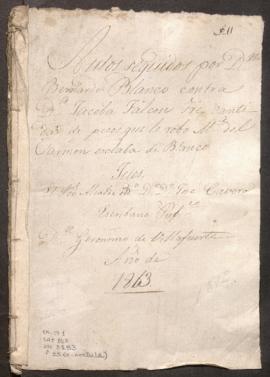 Autos seguidos por Dn.
Bernardo Blanco contra
Da. Jacoba Falcon sre. canti
dad de pesos que le robo Ma. del
Carmen esclava de Blanco
Jues
el Sor. Alcalde Dn. Dn. Jose Cavero
Escribano Pubco.
Dn. Geronimo de Villafuerte
Año de
1813